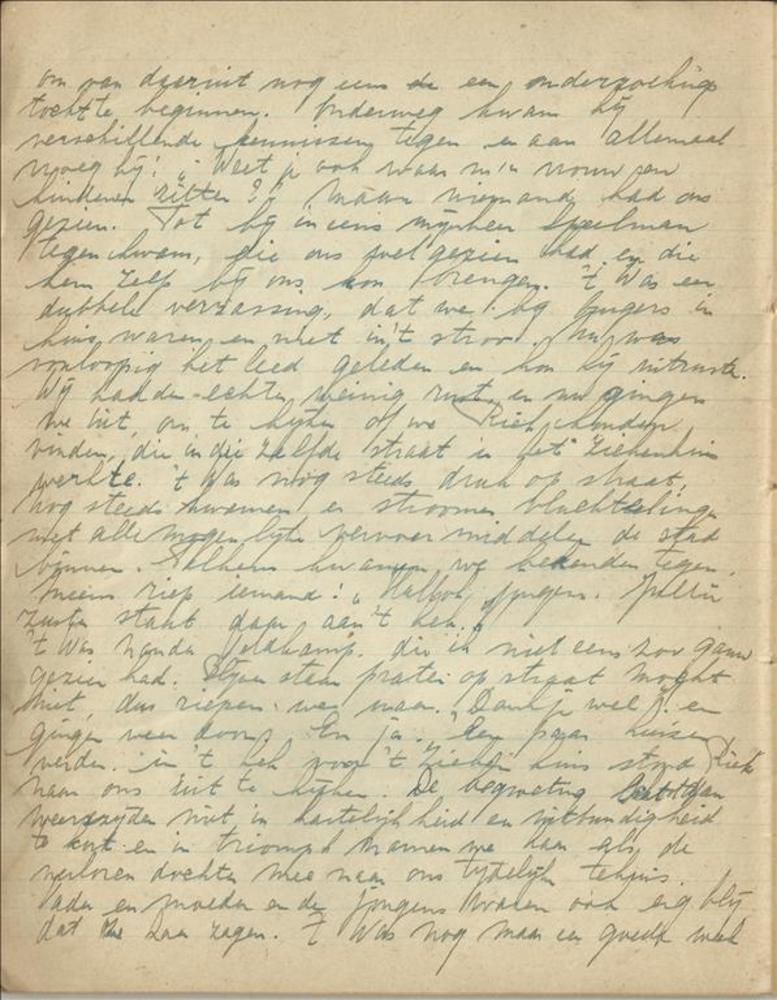 om van daaruit nog eens de een onderzoekings
tocht te beginnen. Onderweg kwam hij
verschillende kennissen tegen en aan allemaal
vroeg hij: „Weet je ook waar m'n vrouw en
kinderen zitten?" Maar niemand had ons
gezien. Tot hij ineens mijnheer Speelman
tegen kwam, die ons wel gezien had en die
hem zelf bij ons kon brengen. 't Was een
dubbele verrassing, dat we bij in
huis waren en niet in 't stroo. Nu was
voorloopig het leed geleden en kon hij uitrusten.
Wij hadden echter weinig rust en nu gingen
we uit, om te kijken of we Riek konden
vinden, die in die zelfde straat in het ziekenhuis
werkte. 't Was nog steeds druk op straat,
nog steeds kwamen er stroomen vluchtelingen
met alle mogelijke vervoermiddelen de stad
binnen. Telkens kwamen we bekenden tegen.
Ineens riep iemand: „Hallo, jongens. Jullie
zuster staat daar aan 't hek."
't Was Nanda Veldkamp, die ik niet eens zoo gauw
gezien had. Blijven staan praten op straat mocht
niet, dus riepen we maar „Dank je wel" en
gingen weer door. En ja. Een paar huizen
verder in 't hek voor 't ziekenhuis stond Riek
naar ons uit te kijken. De begroeting liet dan
weerszijden niet in hartelijkheid en uitbundigheid
te kort en in triomph namen we haar als de
verloren dochter mee naar ons tijdelijk tehuis.
Vader en moeder en de jongens waren ook erg blij
dat ze haar zagen. 't Was nog maar een goede week